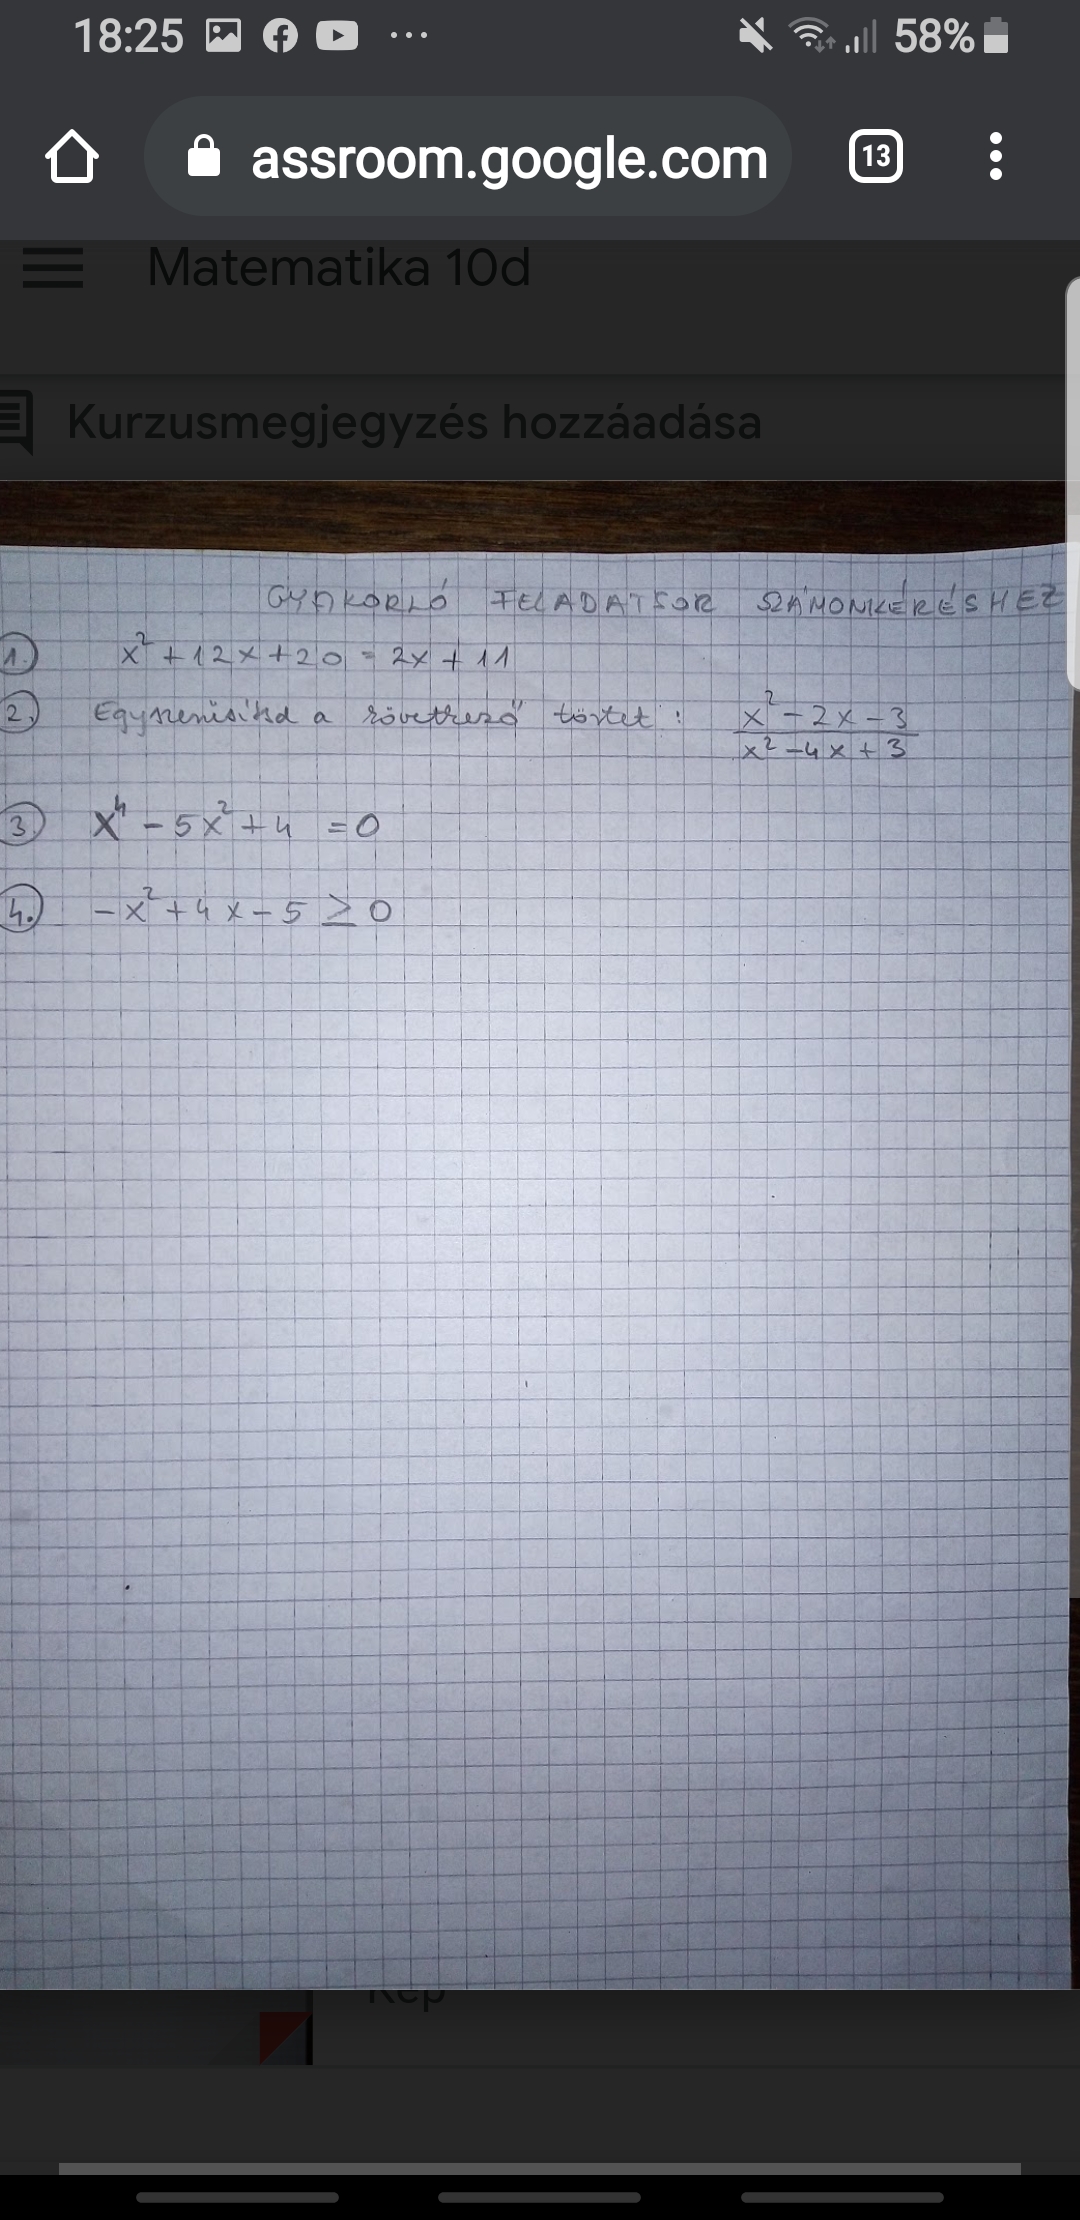 18:25 ... 58%
assroom.google.com 13
Matematika 10d
Kurzusmegjegyzés hozzáadása
GYAKORLÓ FELADATSOR SZÁMONKÉRÉSHEZ
1. x²+12x+20 = 2x+11
2. Egyszerűsítsd a következő törtet: x²-2x-3
x²-4x+3
3 x⁴-5x²+4 =0
4. -x²+4x-5 ≥ 0
Kép